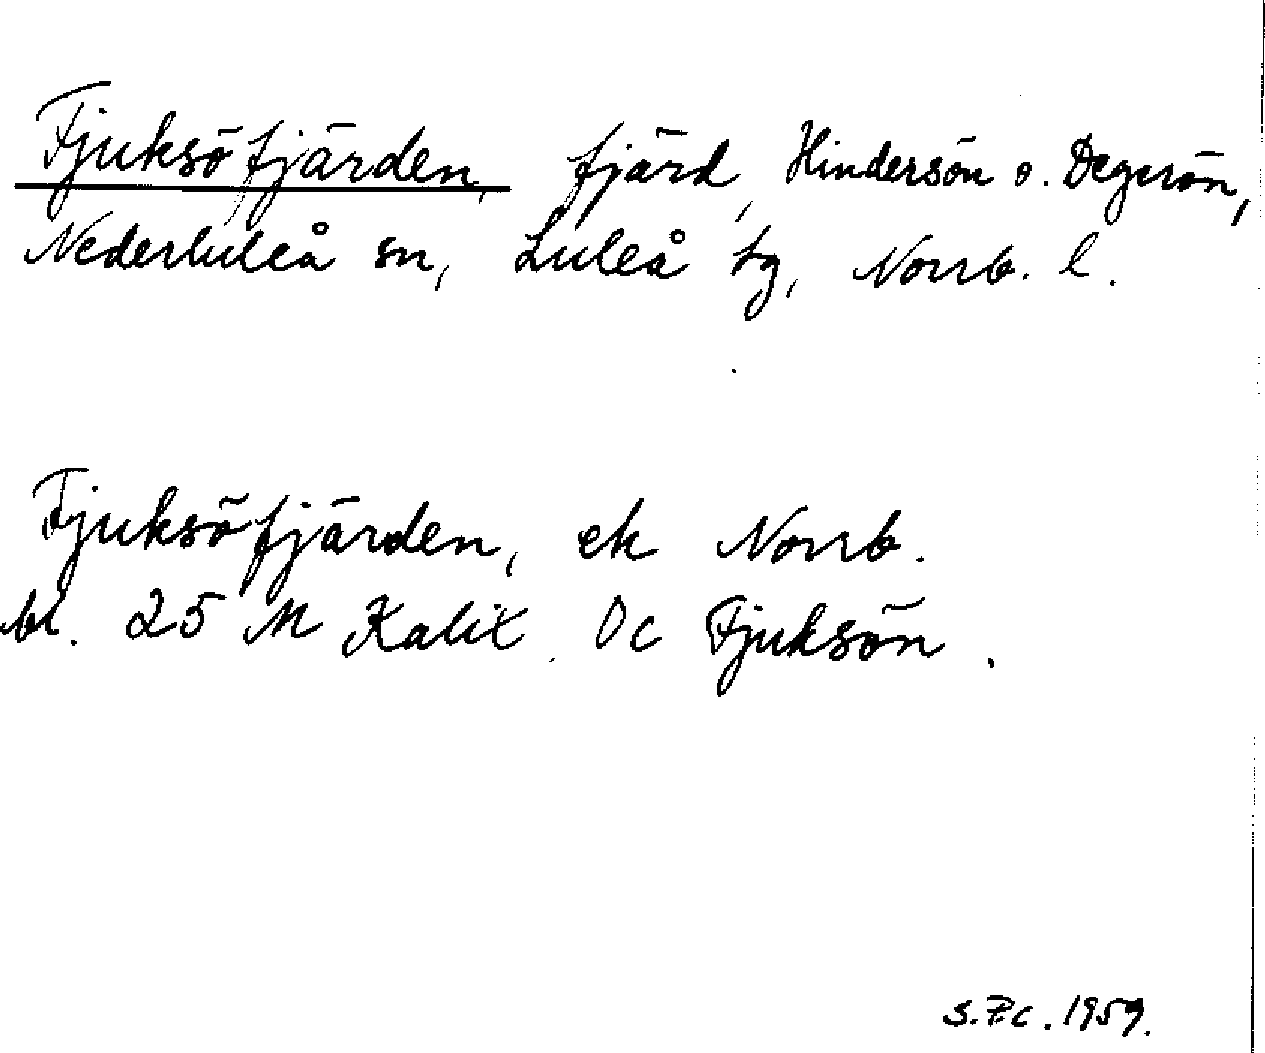 Fjuksöfjärden, fjärd, Hindersön o. Degerön,
Nederluleå sn, Luleå tg, Norrb. l.
Fjuksöfjärden, ek Norrb.
bl. 25 M Kalix. Oc Fjuksön.
1959.